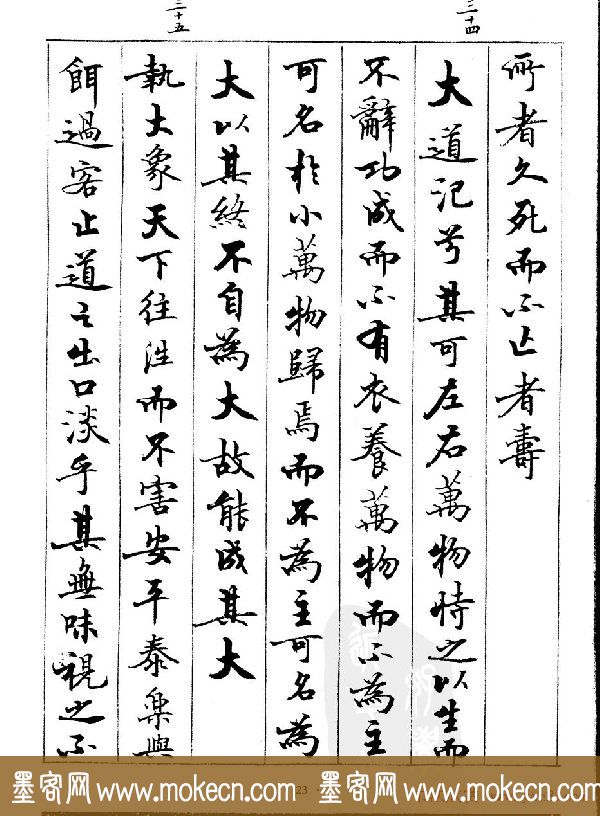 三十四
三十五
所者久死而不亡者壽
大道汜兮其可左右萬物恃之以生而
不辭功成而不有衣養萬物而不為主
可名於小萬物歸焉而不為主可名為
大以其終不自為大故能成其大
執大象天下往往而不害安平泰樂與
餌過客止道之出口淡乎其無味視之不
23
墨客网 www.mokecn.com 墨客网 www.mokecn.com